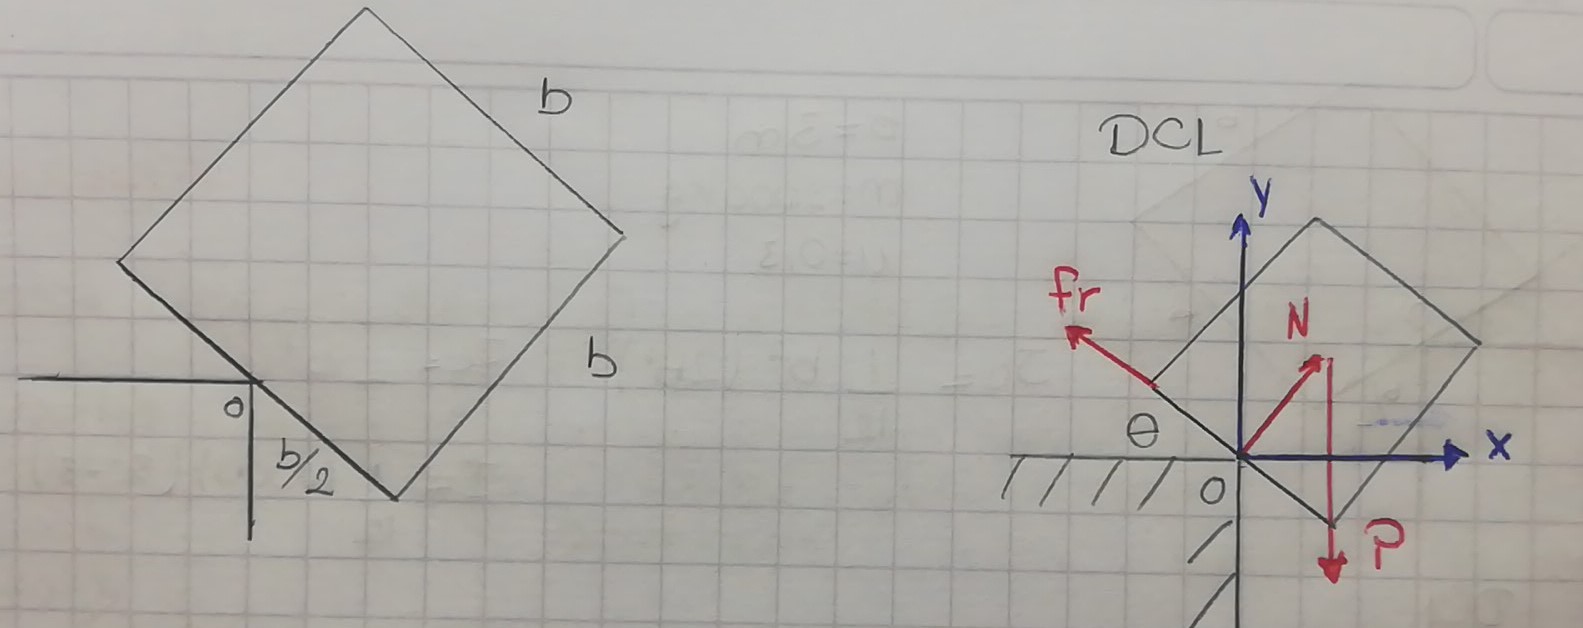 b
b
o
b/2
DCL
y
fr
N
θ
x
O
P